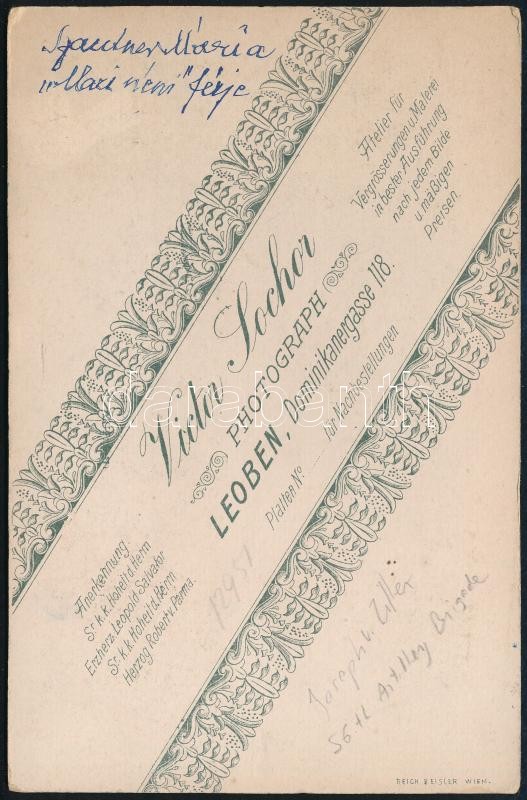 Mária
"Mari néni" férje
Atelier für
Vergrösserungen u. Malerei
in bester Ausführung
nach jedem Bilde
u. mäßigen
Preisen.
Victor Sochor
PHOTOGRAPH
LEOBEN, Dominikanergasse 118.
Platten No für Nachbestellungen
darabanth
Anerkennung:
Sr. k. k. Hoheit d. Herrn
Erzherz. Leopold Salvator
Sr. k. k. Hoheit d. Herrn
Herzog Robert v. Parma.
12951
Joseph v.
56 th Artillery Brigade
REICH & EISLER WIEN.